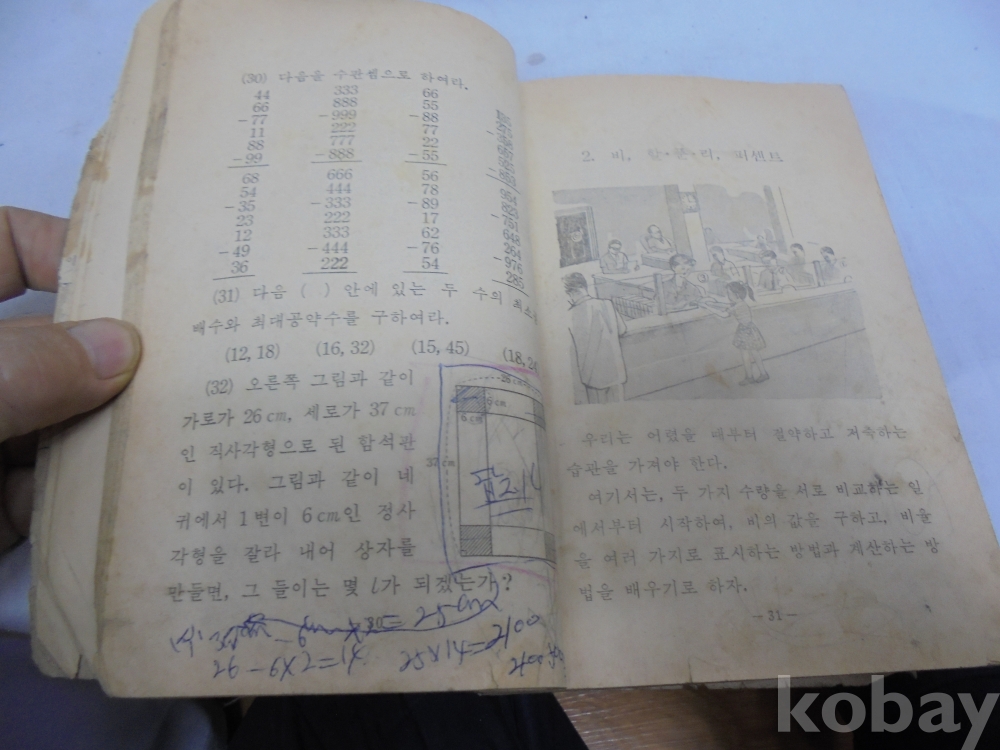 (30) 다음을 수판셈으로 하여라.
44 333 66
66 888 55
-77 -999 -88
11 222 77
88 777 22
-99 -888 -55
68 666 56
54 444 78
-35 -333 -89
23 222 17
12 333 62
-49 -444 -76
36 222 54
648
264
-976
285
(31) 다음 ( ) 안에 있는 두 수의 최소
배수와 최대공약수를 구하여라.
(12, 18) (16, 32) (15, 45) (18, 2
(32) 오른쪽 그림과 같이
가로가 26 cm, 세로가 37 cm
인 직사각형으로 된 함석판
이 있다. 그림과 같이 네
귀에서 1변이 6 cm인 정사
각형을 잘라 내어 상자를
만들면, 그 들이는 몇 l가 되겠는가?
26 cm
6 cm
6 cm
37 cm
= 25 cm
26 - 6 x 2 = 14 25 x 14 = 2100
- 30 -
2. 비, 할·푼·리, 퍼센트
우리는 어렸을 때부터 절약하고 저축하는
습관을 가져야 한다.
여기서는, 두 가지 수량을 서로 비교하는 일
에서부터 시작하여, 비의 값을 구하고, 비율
을 여러 가지로 표시하는 방법과 계산하는 방
법을 배우기로 하자.
- 31 -
kobay